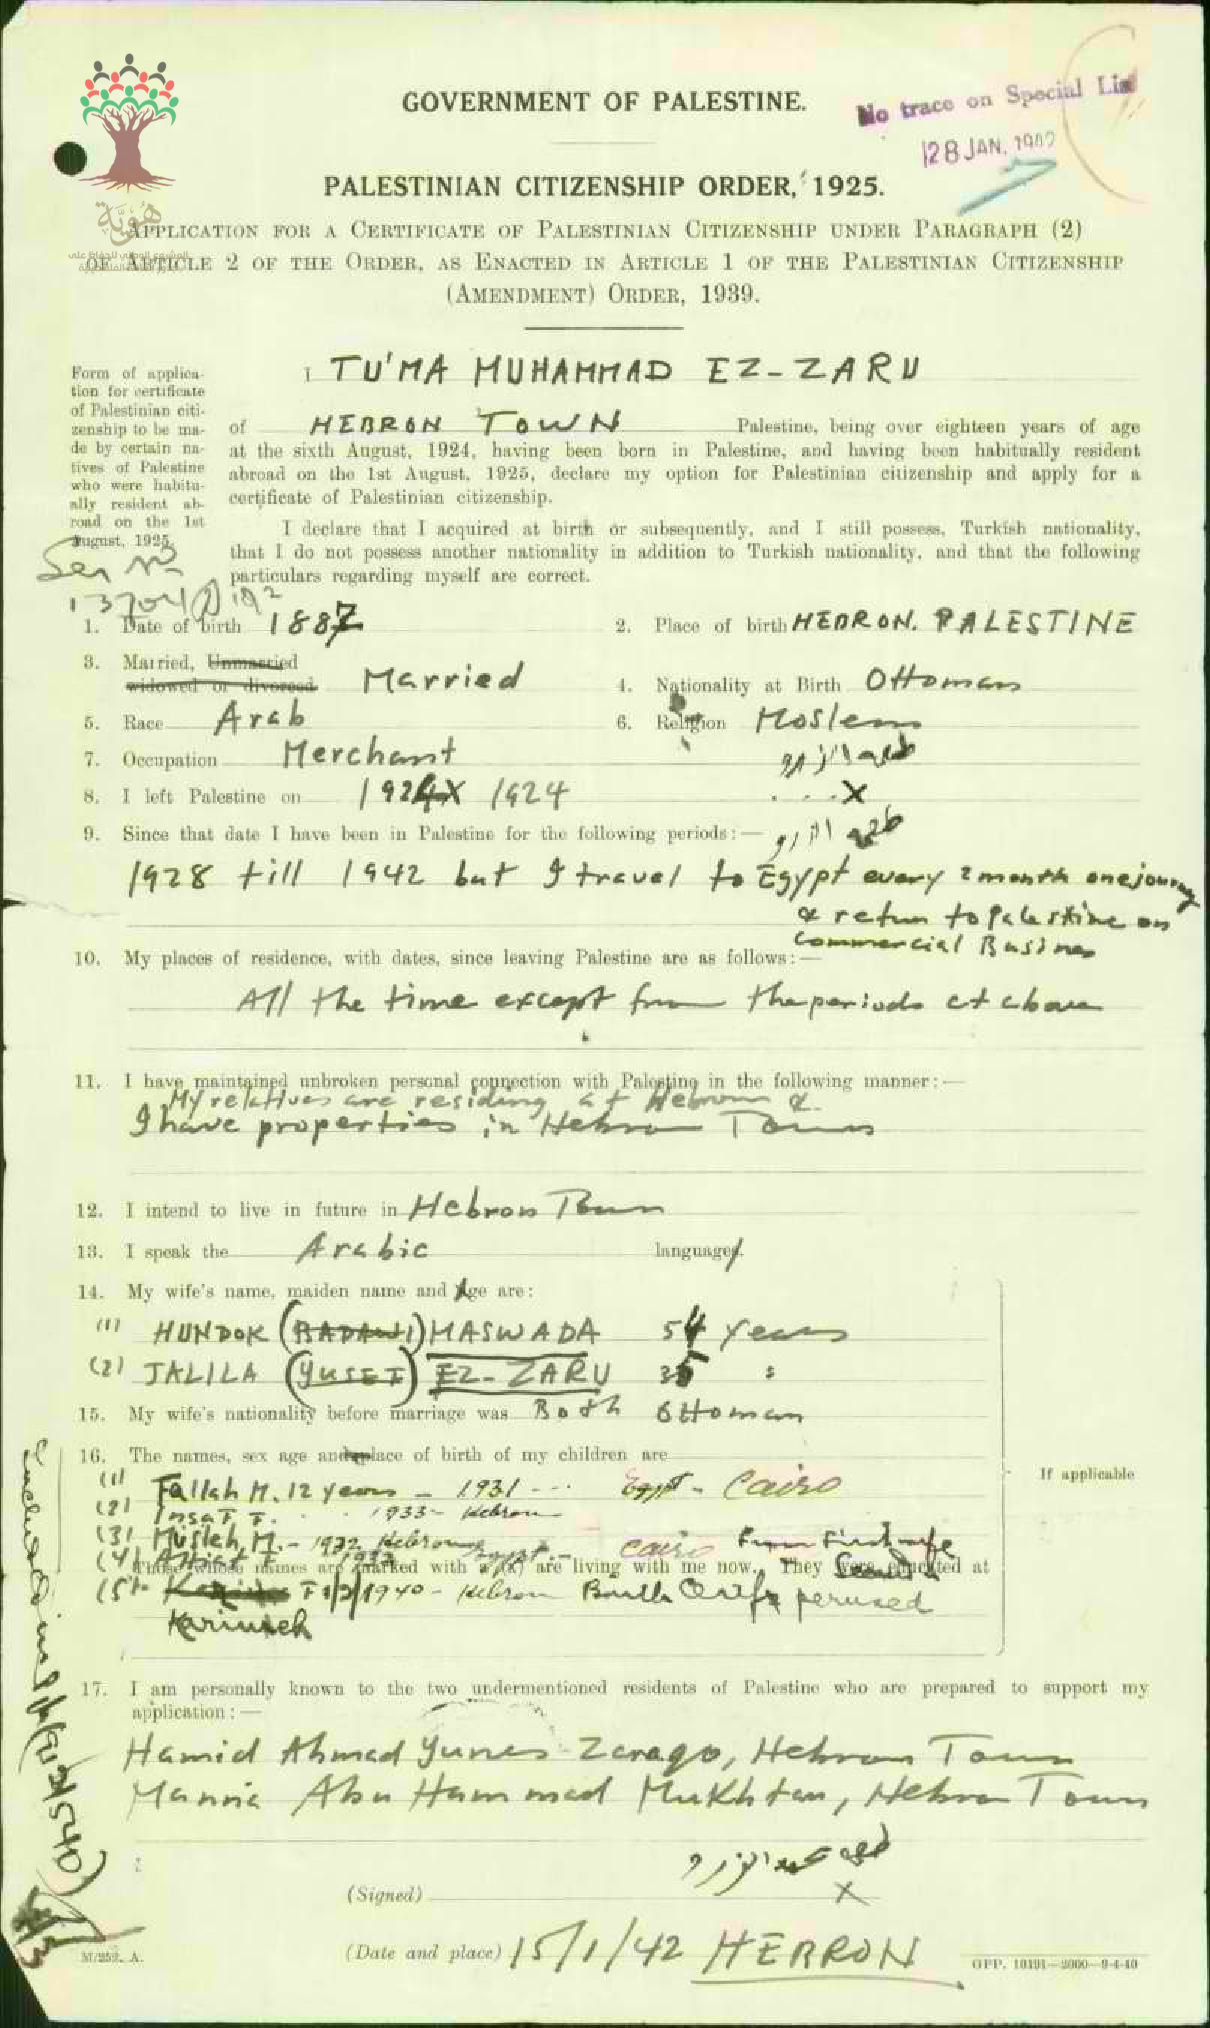 هُوِيَّة
GOVERNMENT OF PALESTINE.
No trace on Special List
28 JAN. 1942
PALESTINIAN CITIZENSHIP ORDER, 1925.
APPLICATION FOR A CERTIFICATE OF PALESTINIAN CITIZENSHIP UNDER PARAGRAPH (2)
OF ARTICLE 2 OF THE ORDER, AS ENACTED IN ARTICLE 1 OF THE PALESTINIAN CITIZENSHIP
(AMENDMENT) ORDER, 1939.
Form of applica-
tion for certificate
of Palestinian citi-
zenship to be ma-
de by certain na-
tives of Palestine
who were habitu-
ally resident ab-
road on the 1st
August, 1925.
I TU'MA MUHAMMAD EZ-ZARU
of HEBRON TOWN Palestine, being over eighteen years of age
at the sixth August, 1924, having been born in Palestine, and having been habitually resident
abroad on the 1st August, 1925, declare my option for Palestinian citizenship and apply for a
certificate of Palestinian citizenship.
I declare that I acquired at birth or subsequently, and I still possess, Turkish nationality,
that I do not possess another nationality in addition to Turkish nationality, and that the following
particulars regarding myself are correct.
1. Date of birth 1887 2. Place of birth HEBRON. PALESTINE
3. Married, Unmarried
widowed or divorced Married 4. Nationality at Birth Ottoman
5. Race Arab 6. Religion Moslem
7. Occupation Merchant
8. I left Palestine on 1924 X 1924 X
9. Since that date I have been in Palestine for the following periods:—
1928 till 1942 but I travel to Egypt every 2 month one journey
& return to Palestine on
commercial Business
10. My places of residence, with dates, since leaving Palestine are as follows:—
All the time except from the periods at above
11. I have maintained unbroken personal connection with Palestine in the following manner:—
My relatives are residing at Hebron &
I have properties in Hebron Town
12. I intend to live in future in Hebron Town
13. I speak the Arabic language.
14. My wife's name, maiden name and Age are:
(1) HUNDOK (BADAWI) MASWADA 54 years
(2) JALILA (YUSEF) EZ-ZARU 35 "
15. My wife's nationality before marriage was Both Ottoman
16. The names, sex age and place of birth of my children are
If applicable
(1) Fallah M. 12 years - 1931 --- Egypt - Cairo
(2) Insaf F. 1933 - Hebron
(3) Musleh M. - 1932 Hebron From First wife
(4) F. 1937 Egypt - Cairo
Those whose names are marked with a (x) are living with me now. They were educated at
(5) F 1940 - Hebron Birth Certifs perused
Karimeh
17. I am personally known to the two undermentioned residents of Palestine who are prepared to support my
application:—
Hamid Ahmad Yunes Zarago, Hebron Town
Mannia Abu Hammad Mukhtar, Hebron Town
(Signed) X
(Date and place) 15/1/42 HEBRON
M/252. A.
GPP. 10191—2000—9-4-40